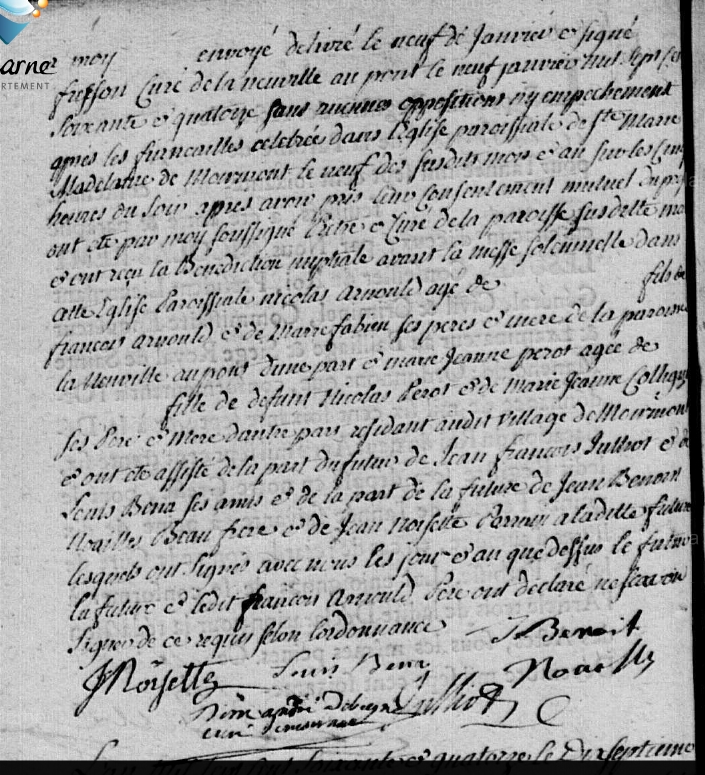 arne
RTEMENT
a moy envoyé delivré le neuf de Janvier & signé
fresson Curé de la neuville au pont le neuf janvier mil sept Cen
Soixante & quatorze sans aucunes oppositions ny empechement
apres les fiancailles celebrées dans l'Eglise paroissiale de Ste Marie
Madelaine de Moirmont le neuf des susdits mois & an sur les Cinq
heures du Soir apres avoir pris leur Consentement mutuel
ont été par moy soussigné Prêtre & Curé de la paroisse susditte
& ont reçu la Benediction nuptiale avant la messe solennelle dans
cette Eglise Paroissiale nicolas arnould agé de fils de
francois arnould & de Marie fabien ses peres & mere de la paroisse
la Neuville au pont d'une part & marie Jeanne perot agée de
fille de defunt Nicolas Perot & de Marie Jeanne
ses Pere & Mere d'autre part résidant audit village de Moirmont
& ont été assisté de la part du futur de Jean francois & de
Louis Bena ses amis & de la part de la future de Jean Benoit
Noailles Beau frere & de Jean Noisette Parrain a la ditte future
lesquels ont signés avec nous les jour & an que dessus le futur
la future & ledit françois Arnould Pere ont declaré ne scavoir
signer de ce requis selon l'ordonnance
J Benoit
J Noisette Louis Bena Noaille
curé
Soixante & quatorze le Dix septieme